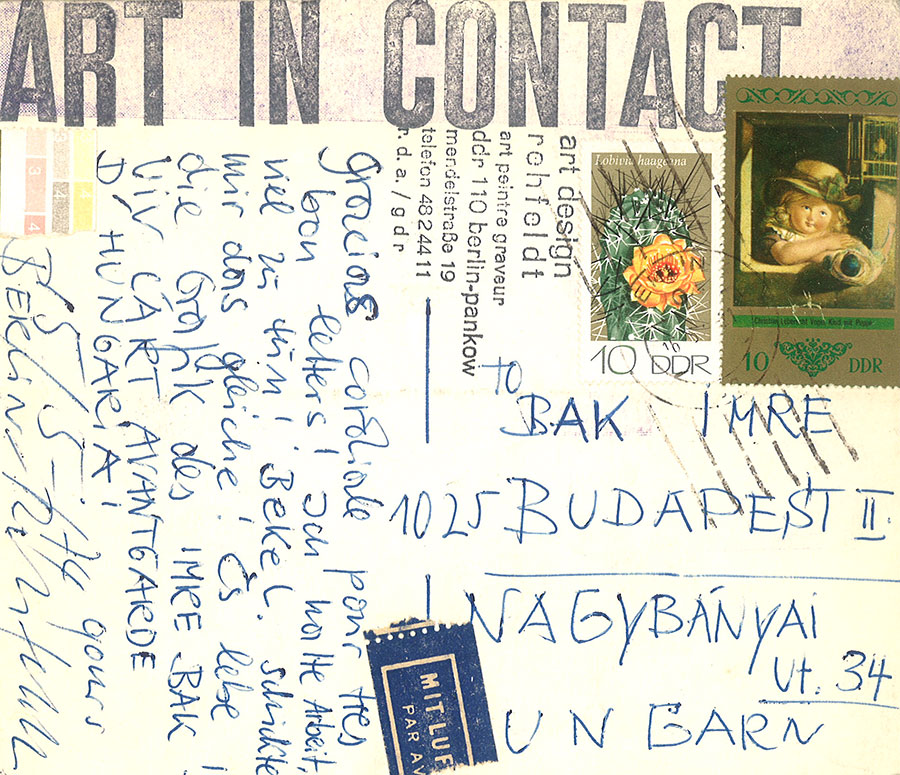 ART IN CONTACT
art design
rehfeldt
art peintre graveur
ddr 110 berlin-pankow
mendelstraße 19
telefon 48 24 411
r.d.a./gdr
Lobivia haageana
10 DDR
10
DDR
to
BAK IMRE
1025 BUDAPEST II
NAGYBÁNYAI
Ut. 34
UNGARN
MIT LUF
PAR AV
gracias cordiale pour tes
bon letters! Ich hatte Arbeit,
viel zu tun! BEKE L. schickte
mir das gleiche! Es lebe
die Grafik des IMRE BAK!
VIV L'ART AVANTGARDE
D'HUNGARIA!
yours
BERLIN
3
4